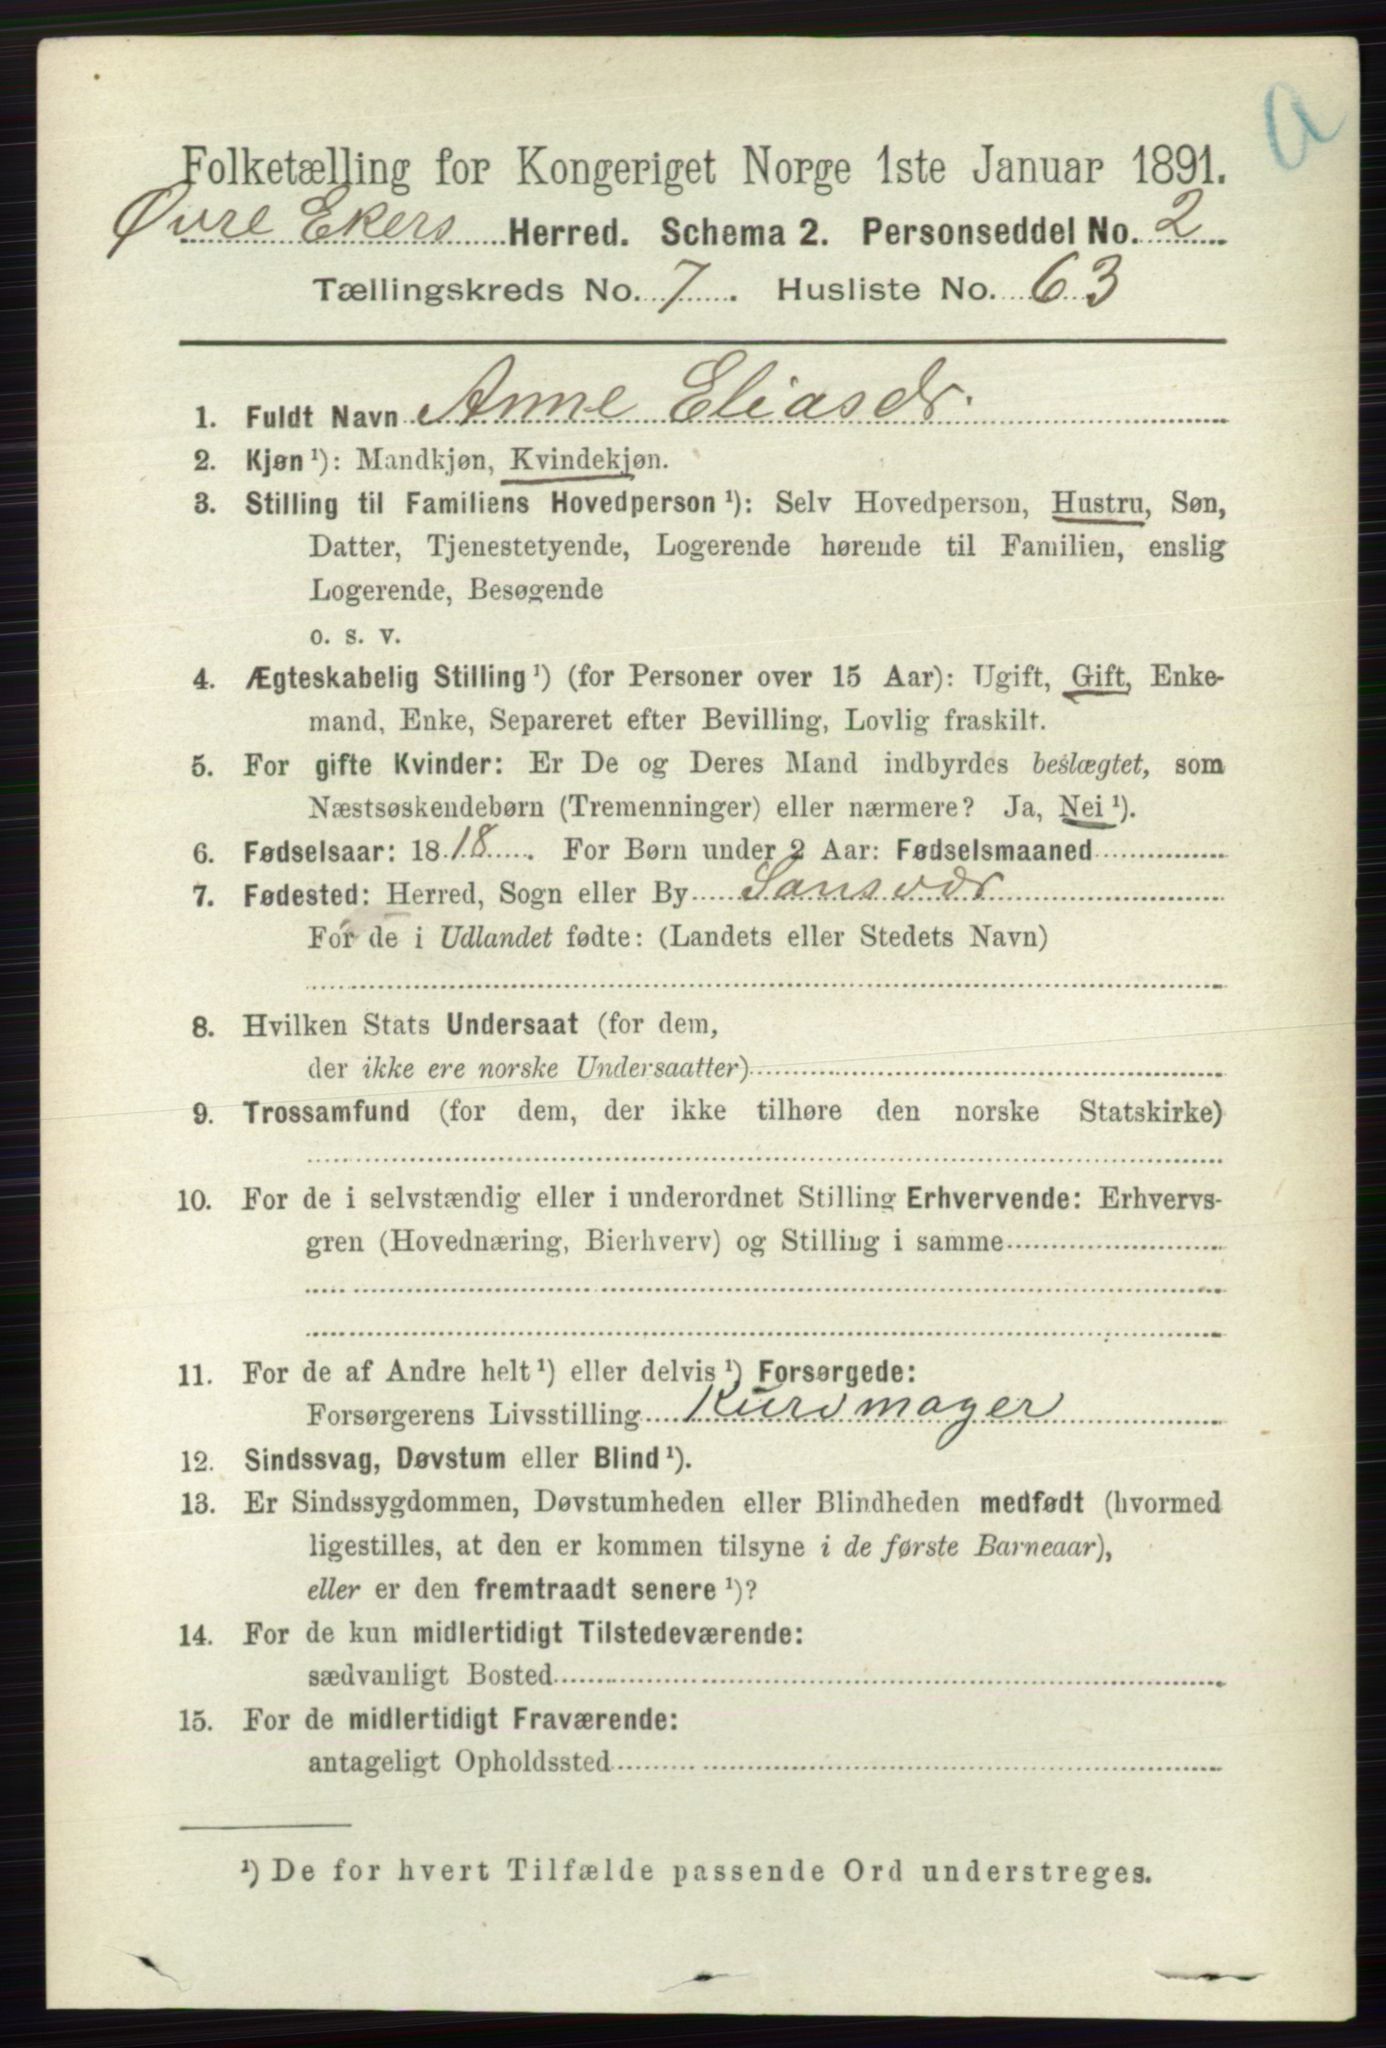 a
Folketælling for Kongeriget Norge 1ste Januar 1891.
Øvre Ekers Herred. Schema 2. Personseddel No. 2
Tællingskreds No. 7. Husliste No. 63
1. Fuldt Navn Anne Eliasdr.
2. Kjøn ¹): Mandkjøn, Kvindekjøn.
3. Stilling til Familiens Hovedperson ¹): Selv Hovedperson, Hustru, Søn,
Datter, Tjenestetyende, Logerende hørende til Familien, enslig
Logerende, Besøgende
o. s. v.
4. Ægteskabelig Stilling ¹) (for Personer over 15 Aar): Ugift, Gift, Enke-
mand, Enke, Separeret efter Bevilling, Lovlig fraskilt.
5. For gifte Kvinder: Er De og Deres Mand indbyrdes beslægtet, som
Næstsøskendebørn (Tremenninger) eller nærmere? Ja, Nei ¹).
6. Fødselsaar: 1818. For Børn under 2 Aar: Fødselsmaaned
7. Fødested: Herred, Sogn eller By Sansvær
For de i Udlandet fødte: (Landets eller Stedets Navn)
8. Hvilken Stats Undersaat (for dem,
der ikke ere norske Undersaatter)
9. Trossamfund (for dem, der ikke tilhøre den norske Statskirke)
10. For de i selvstændig eller i underordnet Stilling Erhvervende: Erhvervs-
gren (Hovednæring, Bierhverv) og Stilling i samme
11. For de af Andre helt ¹) eller delvis ¹) Forsørgede:
Forsørgerens Livsstilling Kurvmager
12. Sindssvag, Døvstum eller Blind ¹).
13. Er Sindssygdommen, Døvstumheden eller Blindheden medfødt (hvormed
ligestilles, at den er kommen tilsyne i de første Barneaar),
eller er den fremtraadt senere ¹)?
14. For de kun midlertidigt Tilstedeværende:
sædvanligt Bosted
15. For de midlertidigt Fraværende:
antageligt Opholdssted
¹) De for hvert Tilfælde passende Ord understreges.